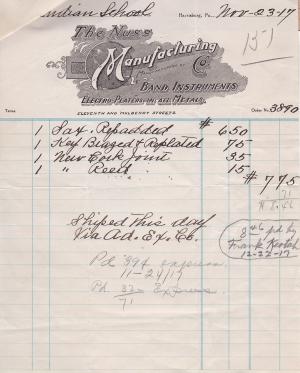 Indian School
Harrisburg, Pa., Nov-23-17
151
The Nuss
Manufacturing Co.
Band Instruments
Electro-Platers in all Metals
Terms
Order No. 3890
Eleventh and Mulberry Streets.
1 Sax. Repadded # 6 50
1 Key Brazed & Replated 75
1 New Cork Joint 35
1 " Reed 15
# 7 75
71
# 8.46
Shiped This day
Via Ad. Ex. Co.
8 46 pd by
Frank
12-22-17
Pd 39¢ express
11-24/17
Pd. 32 Express
71